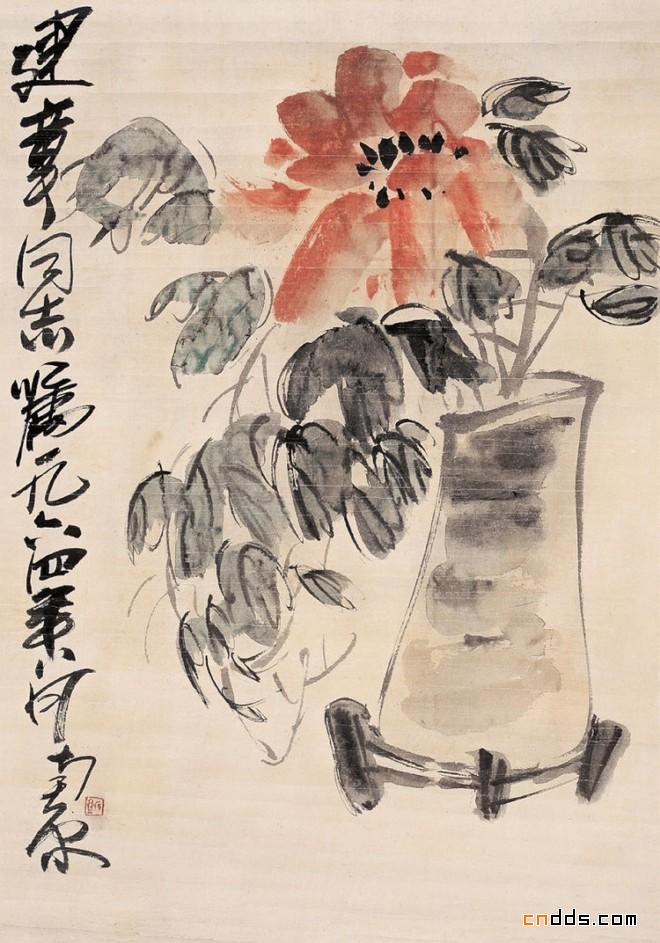 建章同志嘱一九六四年
cndds.com